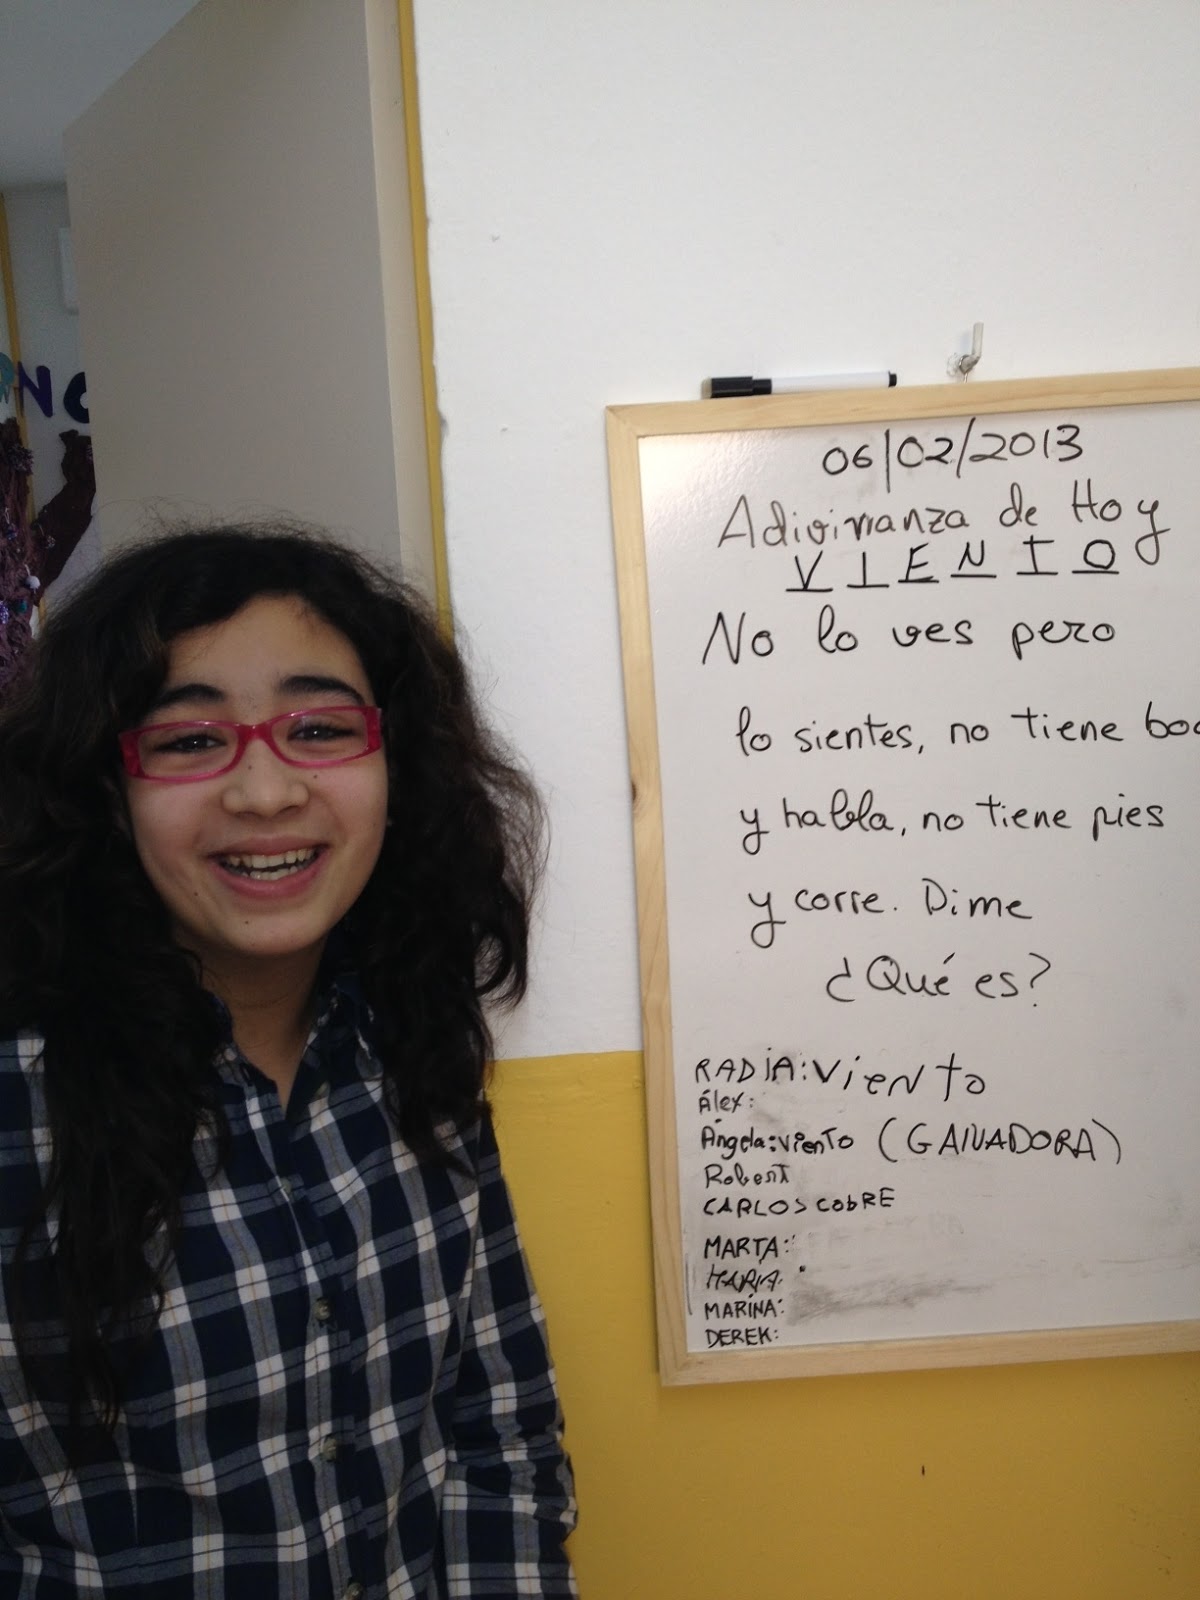 06/02/2013
Adivinanza de Hoy
VIENTO
No lo ves pero
lo sientes, no tiene boc
y habla, no tiene pies
y corre. Dime
¿Qué es?
RADIA: viento
Álex:
Ángela: viento (GANADORA)
Robert
CARLOS COBRE
MARTA:
MARÍA:
MARINA:
DEREK: